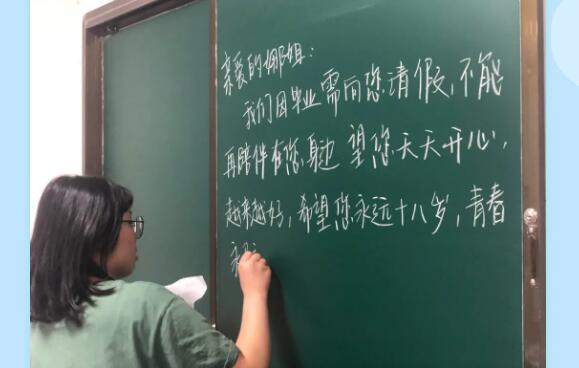 亲爱的娜姐：
我们因毕业需向您请假，不能
再陪伴在您身边 望您天天开心，
越来越好，希望您永远十八岁，青春
永